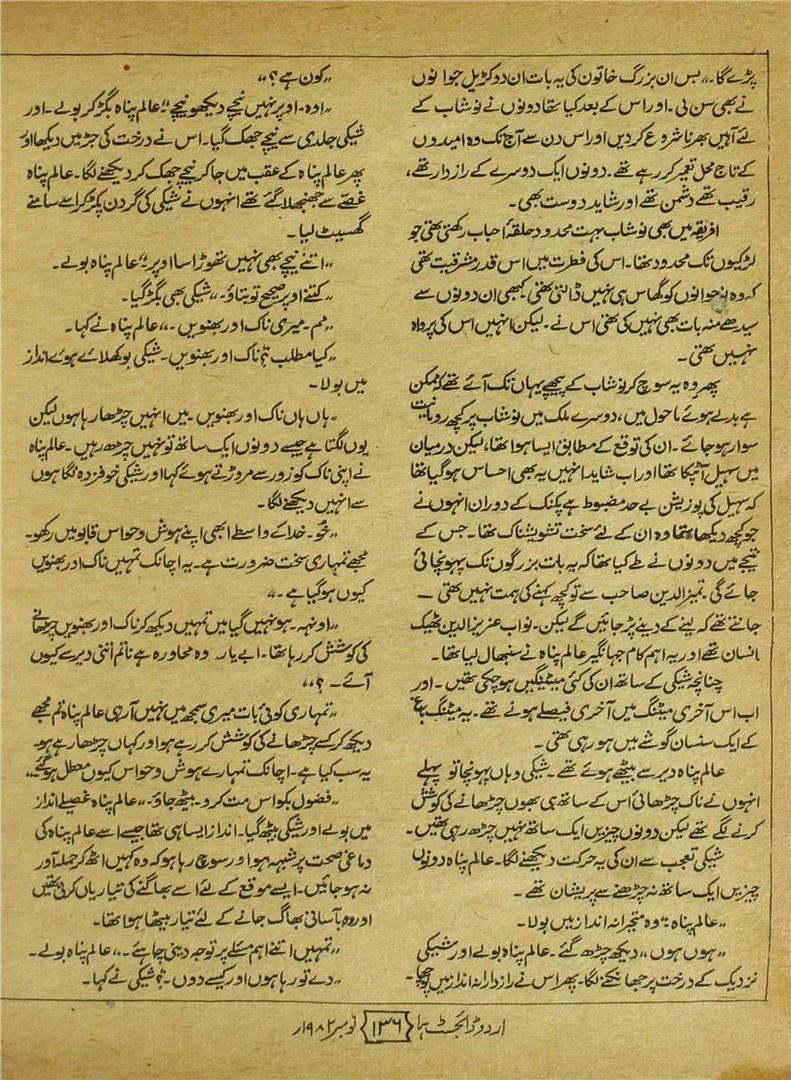 پڑے گا۔" بس ان بزرگ خاتون کی یہ بات ان دو کڑیل جوانوں
نے بھی سن لی۔ اور اس کے بعد کیا تھا دونوں نے نوشاب کے
لئے آہیں بھرنا شروع کر دیں اور اس دن سے آج تک وہ امیدوں
کے تاج محل تعمیر کر رہے تھے۔ دونوں ایک دوسرے کے رازدار تھے،
رقیب تھے دشمن تھے اور شاید دوست بھی۔
افریقہ میں بھی نوشاب بہت محدود حلقۂ احباب رکھتی تھی جو
لڑکیوں تک محدود تھا۔ اس کی فطرت میں اس قدر مشرقیت تھی
کہ وہ نوجوانوں کو گھاس ہی نہیں ڈالتی تھی۔ کبھی ان دونوں سے
سیدھے منہ بات بھی نہیں کی تھی اس نے۔ لیکن انہیں اس کی پرواہ
نہیں تھی۔
پھر وہ یہ سوچ کر نوشاب کے پیچھے یہاں تک آئے تھے کہ ممکن
ہے بدلے ہوئے ماحول میں، دوسرے ملک میں نوشاب پر کچھ رومانیت
سوار ہو جائے۔ ان کی توقع کے مطابق ایسا ہوا تھا، لیکن درمیان
میں سہیل آٹپکا تھا اور اب شاید انہیں یہ بھی احساس ہو گیا تھا
کہ سہیل کی پوزیشن بے حد مضبوط ہے پکنک کے دوران انہوں نے
جو کچھ دیکھا تھا وہ ان کے لئے سخت تشویشناک تھا۔ جس کے
نتیجے میں دونوں نے طے کیا تھا کہ یہ بات بزرگوں تک پہونچائی
جائے گی۔ تمیزالدین صاحب سے تو کچھ کہنے کی ہمت نہیں تھی —
جانتے تھے کہ لینے کے دینے پڑ جائیں گے لیکن۔ نواب عزیزالدین ٹھیک
انسان تھے اور یہ اہم کام جہانگیر عالم پناہ نے سنبھال لیا تھا۔
چنانچہ شیکی کے ساتھ ان کی کئی میٹنگیں ہو چکی تھیں۔ اور
اب اس آخری میٹنگ میں آخری فیصلے ہونے تھے۔ یہ میٹنگ باغ
کے ایک سنسان گوشے میں ہو رہی تھی۔
عالم پناہ دیر سے بیٹھے ہوئے تھے۔ شیکی وہاں پہونچا تو پہلے
انہوں نے ناک چڑھائی اس کے ساتھ ہی بھوں چڑھانے کی کوشش
کرنے لگے تھے لیکن دونوں چیزیں ایک ساتھ نہیں چڑھ رہی تھیں۔
شیکی تعجب سے ان کی یہ حرکت دیکھنے لگا۔ عالم پناہ دونوں
چیزیں ایک ساتھ نہ چڑھنے سے پریشان تھے۔
"عالم پناہ!" وہ متحیرانہ انداز میں بولا۔
"ہوں ہوں،، دیکھ چڑھ گئے۔ عالم پناہ بولے اور شیکی
نزدیک کے درخت پر جھانکنے لگا۔ پھر اس نے رازدارانہ انداز میں پوچھا۔
"کون ہے؟"
"اوہ۔ اوپر نہیں نیچے دیکھو نیچے!" عالم پناہ بگڑ کر بولے۔ اور
شیکی جلدی سے نیچے جھک گیا۔ اس نے درخت کی جڑ میں دیکھا اور
پھر عالم پناہ کے عقب میں جا کر نیچے جھک کر دیکھنے لگا۔ عالم پناہ
غصے سے جھنجھلا گئے تھے انہوں نے شیکی کی گردن پکڑ کر اسے سامنے
گھسیٹ لیا۔
"اتنے نیچے بھی نہیں تھوڑا سا اوپر!" عالم پناہ بولے۔
"کتنے اوپر صحیح تو بتاؤ۔" شیکی بھی بگڑ گیا۔
"مم۔ میری ناک اور بھنویں۔" عالم پناہ نے کہا۔
"کیا مطلب؟ ناک اور بھنویں۔ شیکی بوکھلائے ہوئے انداز
میں بولا۔
"ہاں ہاں ناک اور بھنویں۔ میں انہیں چڑھا رہا ہوں لیکن
یوں لگتا ہے جیسے دونوں ایک ساتھ تو نہیں چڑھ رہیں۔ عالم پناہ
نے اپنی ناک کو زور سے مروڑتے ہوئے کہا اور شیکی خوفزدہ نگاہوں
سے انہیں دیکھنے لگا۔
خدا کے واسطے ابھی اپنے ہوش و حواس قابو میں رکھو۔
مجھے تمہاری سخت ضرورت ہے۔ یہ اچانک تمہیں ناک اور بھنویں
کیوں ہو گیا ہے۔"
"اونہہ۔ ہو نہیں گیا میں تمہیں دیکھ کر ناک اور بھنویں چڑھانے
کی کوشش کر رہا تھا۔ ابے یار۔ وہ محاورہ ہے نا تم اتنی دیر سے کیوں
آئے۔؟"
"تمہاری کوئی بات میری سمجھ میں نہیں آ رہی عالم پناہ تم مجھے
دیکھ کر کسے چڑھانے کی کوشش کر رہے ہو اور کہاں چڑھا رہے ہو۔
یہ سب کیا ہے۔ اچانک تمہارے ہوش و حواس کیوں معطل ہو گئے"
"فضول بکواس مت کرو۔ بیٹھ جاؤ۔" عالم پناہ غصیلے انداز
میں بولے اور شیکی بیٹھ گیا۔ انداز ایسا ہی تھا جیسے اسے عالم پناہ کی
دماغی صحت پر شبہہ ہو اور سوچ رہا ہو کہ وہ کہیں اٹھ کر حملہ آور
نہ ہو جائیں۔ ایسے موقع کے لئے اسے بھاگنے کی تیاریاں کرنی تھیں
اور وہ بآسانی بھاگ جانے کے لئے تیار بیٹھا ہوا تھا۔
"تمہیں اتنے اہم مسئلے پر توجہ دینی چاہئے۔" عالم پناہ بولے۔
"دے تو رہا ہوں اور کیسے دوں۔؟ شیکی نے کہا۔
اردو ڈائجسٹ ہما {۱۳۶} نومبر ۱۹۸۲ء